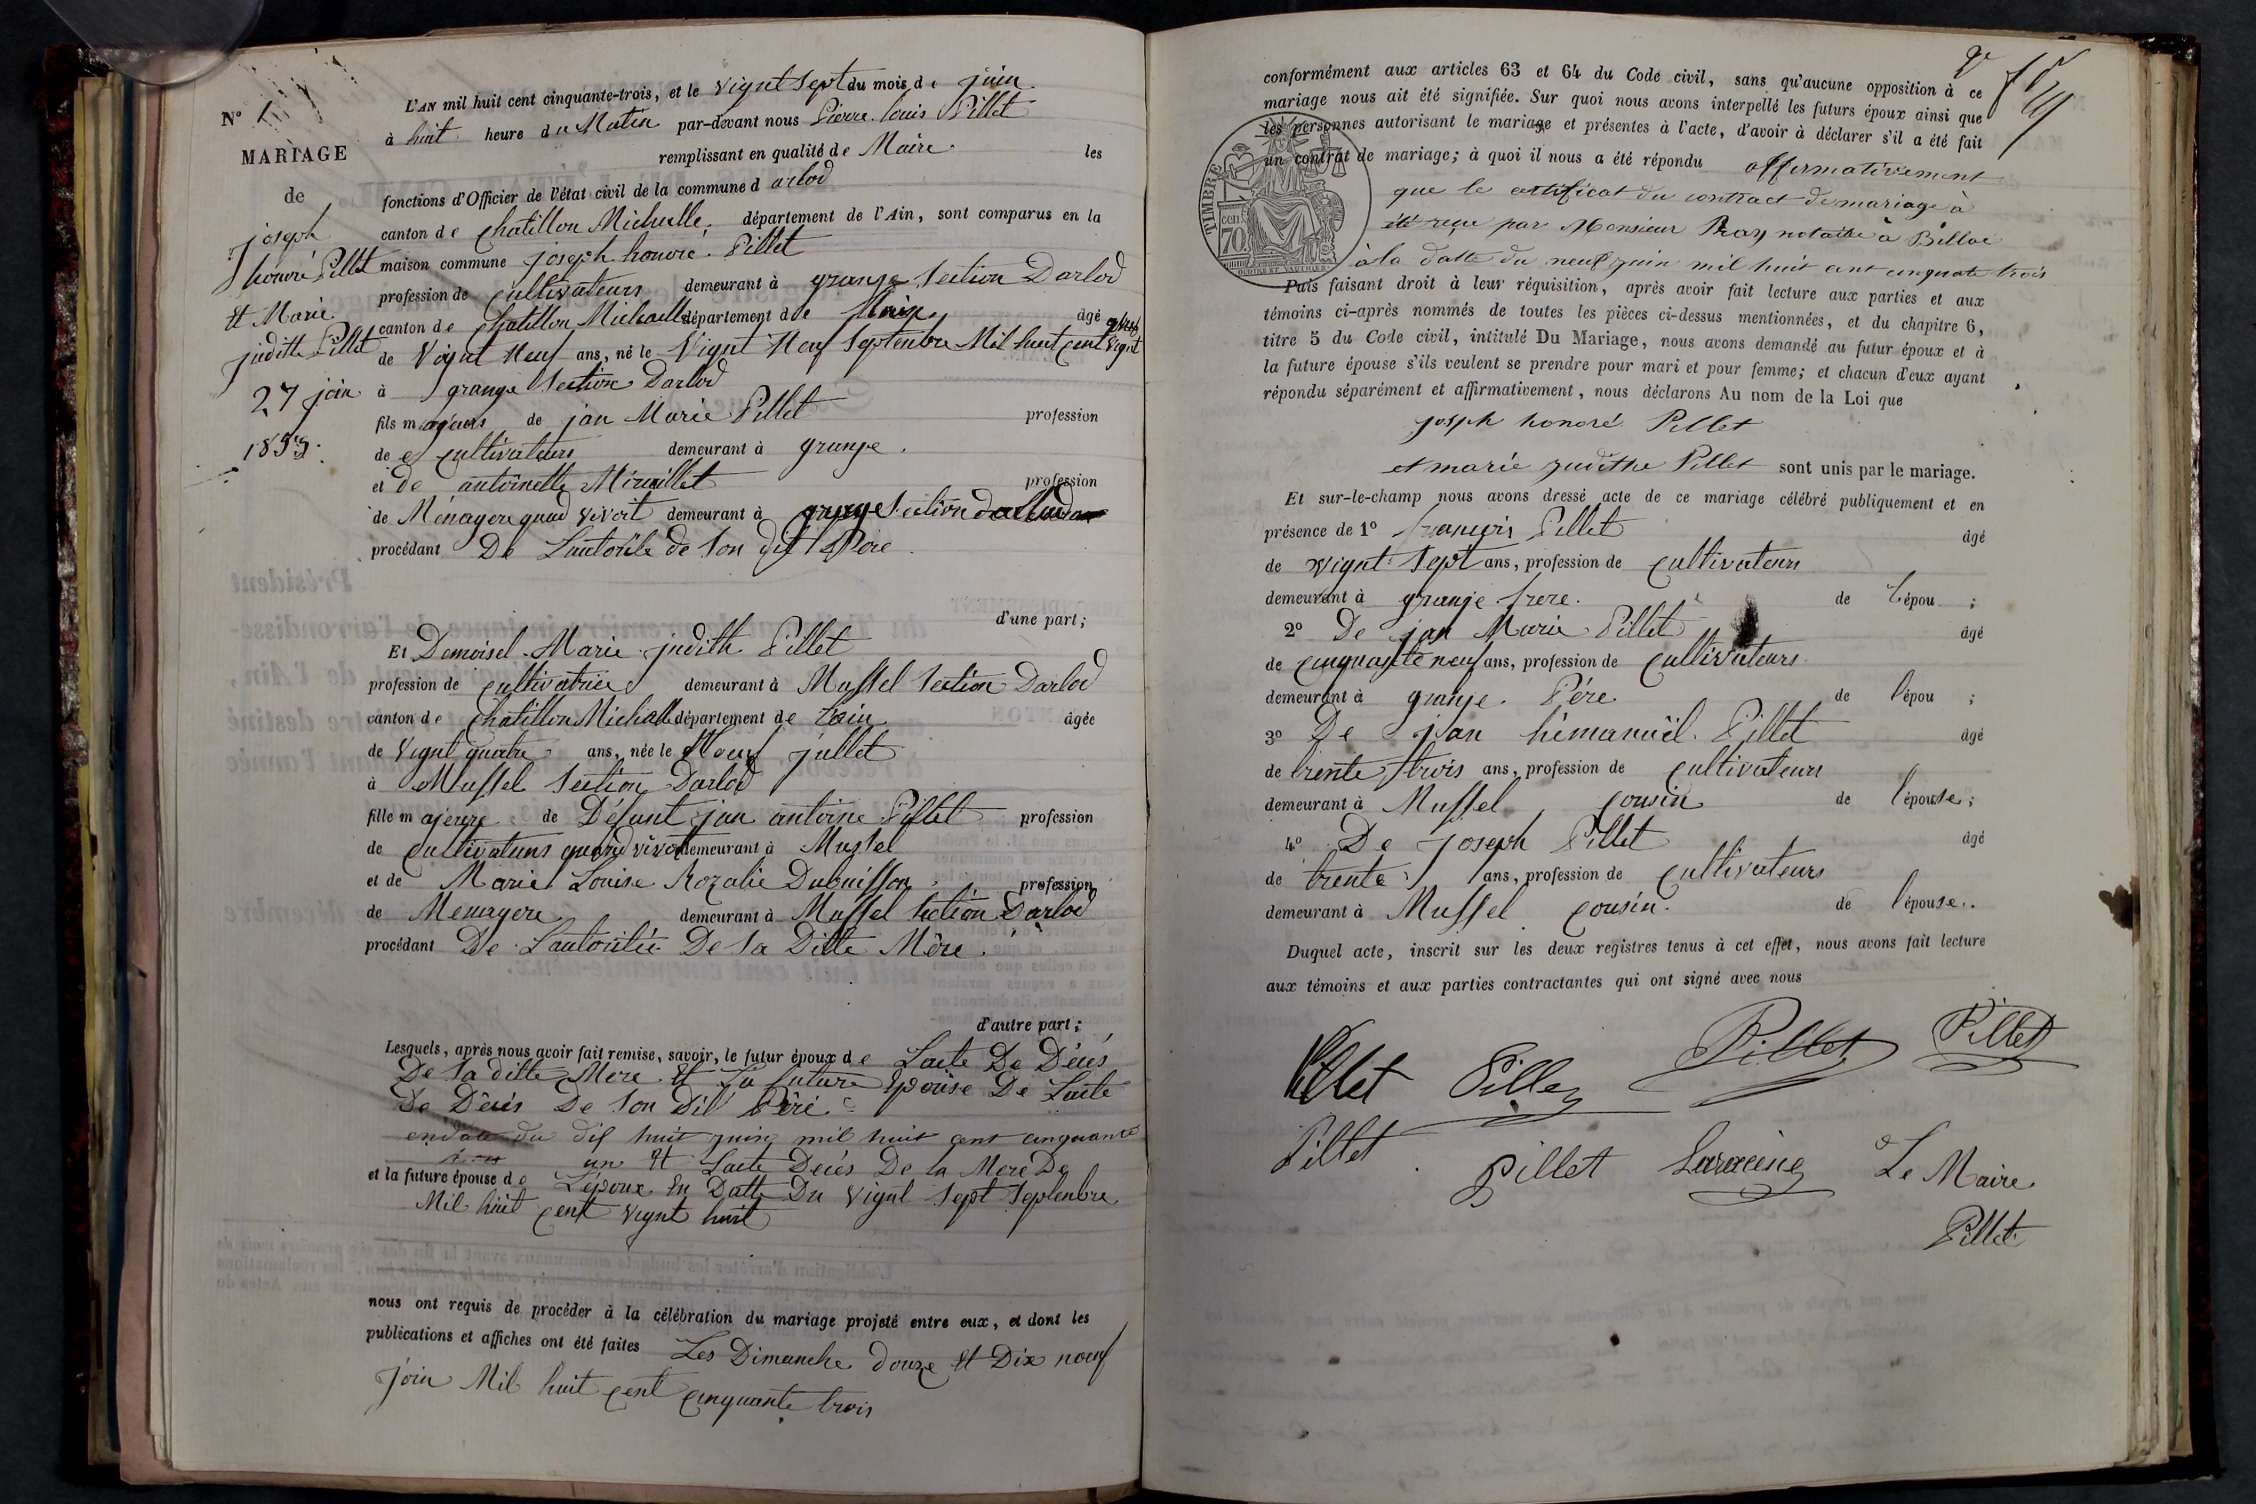 N° 1
MARIAGE
de
joseph
honoré Pillet
Et Marie
judith Pillet
27 join
1853.
L'AN mil huit cent cinquante-trois, et le vignt Sept du mois de juin
à huit heure du Matin par-devant nous Pierre louis Pillet
remplissant en qualité de Maire les
fonctions d'Officier de l'état civil de la commune d arlod
canton de Chatillon Michaille département de l'Ain, sont comparus en la
maison commune joseph honoré Pillet
profession de Cultivateurs demeurant à grange Section Darlod
canton de Chatillon Michaille département de âgé
de Vignt Neuf ans, né le Vignt Neuf Septenbre Mil huit Cent vignt
à grange Section Darlod
fils majeurs de jan Marie Pillet profession
de Cultivateurs demeurant à grange.
et de antoinette profession
de Ménagere quand vivoit demeurant à grange Section
procédant De Lautorité de Son dit Pere
d'une part;
Et Demoisel Marie judith Pillet
profession de Cultivatrice demeurant à Mussel Section Darlod
canton de Chatillon Michaille département de Lain âgée
de Vignt quatre ans, née le Neuf jullet
à Mussel Section Darlod
fille majeure de Défunt jan antoine Pillet profession
de Cultivateurs quand vivoit demeurant à Mussel
et de Marie Louise Rozalie Dubuisson profession
de Menagere demeurant à Mussel Section Darlod
procédant De Lautoritée De Sa Ditte Mère.
d'autre part;
Lesquels, après nous avoir fait remise, savoir, le futur époux de Lacte De Décés
De Sa ditte Mere Et La future Epouse De Lacte
De Décés De Son Dit Péré
en date du dif huit juin mil huit cent cinquante
un Et Lacte Decés De la Mere De
et la future épouse de L'époux En Datte Du vignt Sept Septenbre
Mil huit Cent vignt huit
nous ont requis de procéder à la célébration du mariage projeté entre eux, et dont les
publications et affiches ont été faites Les Dimanche douze Et Dix neuf
Join Mil huit Cent Cinquante trois
conformément aux articles 63 et 64 du Code civil, sans qu'aucune opposition à ce
mariage nous ait été signifiée. Sur quoi nous avons interpellé les futurs époux ainsi que
les personnes autorisant le mariage et présentes à l'acte, d'avoir à déclarer s'il a été fait
un contrat de mariage; à quoi il nous a été répondu affirmativement
que le certificat du contract de mariage à
été reçu par Monsieur notaire à
à la datte du neuf juin mil huit cent cinquate trois
TIMBRE
70 cent
Puis faisant droit à leur réquisition, après avoir fait lecture aux parties et aux
témoins ci-après nommés de toutes les pièces ci-dessus mentionnées, et du chapitre 6,
titre 5 du Code civil, intitulé Du Mariage, nous avons demandé au futur époux et à
la future épouse s'ils veulent se prendre pour mari et pour femme; et chacun d'eux ayant
répondu séparément et affirmativement, nous déclarons Au nom de la Loi que
josph honoré Pillet
et marie judithe Pillet sont unis par le mariage.
Et sur-le-champ nous avons dressé acte de ce mariage célébré publiquement et en
présence de 1° françois Pillet âgé
de vignt Sept ans, profession de Cultivateurs
demeurant à grange frere. de l'épou ;
2° De jan Marie Pillet âgé
de Cinquante neuf ans, profession de Cultivateurs
demeurant à grange. Pére de l'épou ;
3° De jan himanuël Pillet âgé
de trente trois ans, profession de Cultivateurs
demeurant à Mussel Cousin de l'épouse;
4° De joseph Pillet âgé
de trente ans, profession de Cultivateurs
demeurant à Mussel Cousin. de l'épouse.
Duquel acte, inscrit sur les deux registres tenus à cet effet, nous avons fait lecture
aux témoins et aux parties contractantes qui ont signé avec nous
Pillet Pillet Pillet Pillet
Pillet Pillet Laracine Le Maire
Pillet